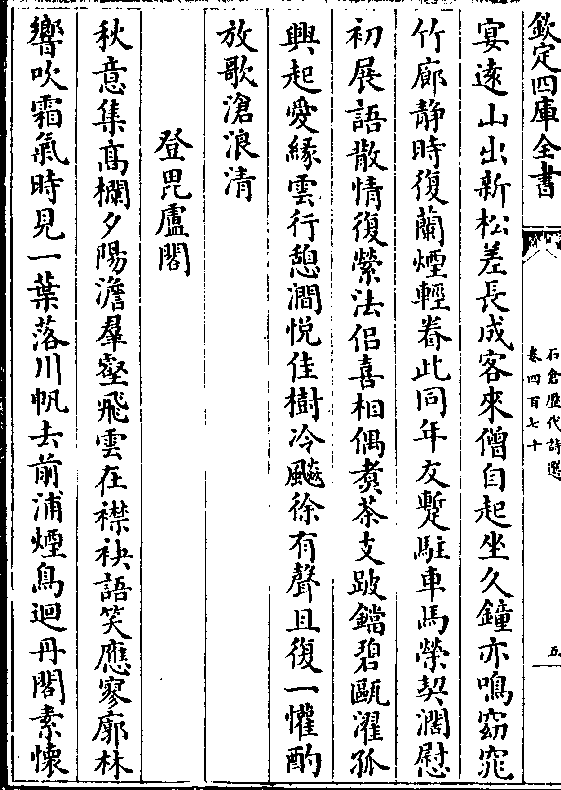 欽定四庫全書
石倉歷代詩選
卷四百七十
五
宴遠山出新松差長成客來僧自起坐久鐘亦鳴窈窕
竹廊靜時復蘭煙輕眷此同年友蹔駐車馬榮契濶慰
初展語散情復縈法侣喜相偶煑茶支跛鐺碧甌濯孤
興起愛緣雲行憩澗悅佳樹冷飈徐有聲且復一懽酌
放歌滄浪清
登毘盧閣
秋意集髙欄夕陽澹羣壑飛雲在襟袂語笑應寥廓林
響吹霜氣時見一葉落川帆去前浦煙鳥迴丹閣素懐